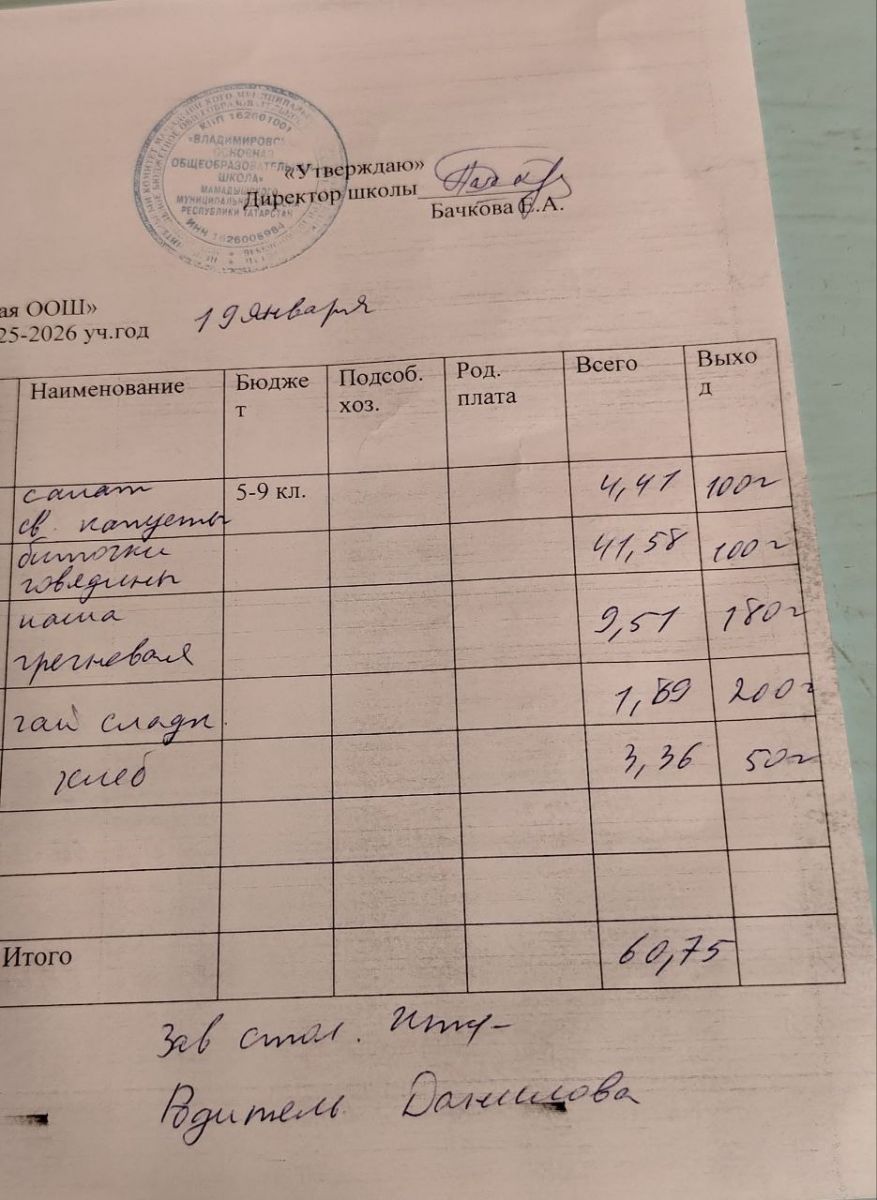 КПП 162601001
«ВЛАДИМИРОВС
ОСНОВНАЯ
ОБЩЕОБРАЗОВАТЕЛЬНАЯ
ШКОЛА»
МАМАДЫШСКОГО
МУНИЦИПАЛЬНОГО
РЕСПУБЛИКИ ТАТАРСТАН
ИНН 1626006984
«Утверждаю»
Директор школы
Бачкова Е.А.
ая ООШ»
25-2026 уч.год
19 января
Наименование Бюдже Подсоб. Род. Всего Выхо
т хоз. плата д
салат 5-9 кл. 4,41 100г
св. капусты
биточки 41,58 100г
говядины
каша 9,51 180г
гречневая
чай сладк. 1,89 200г
хлеб 3,36 50г
Итого 60,75
Зав стол.
Родитель Данилова